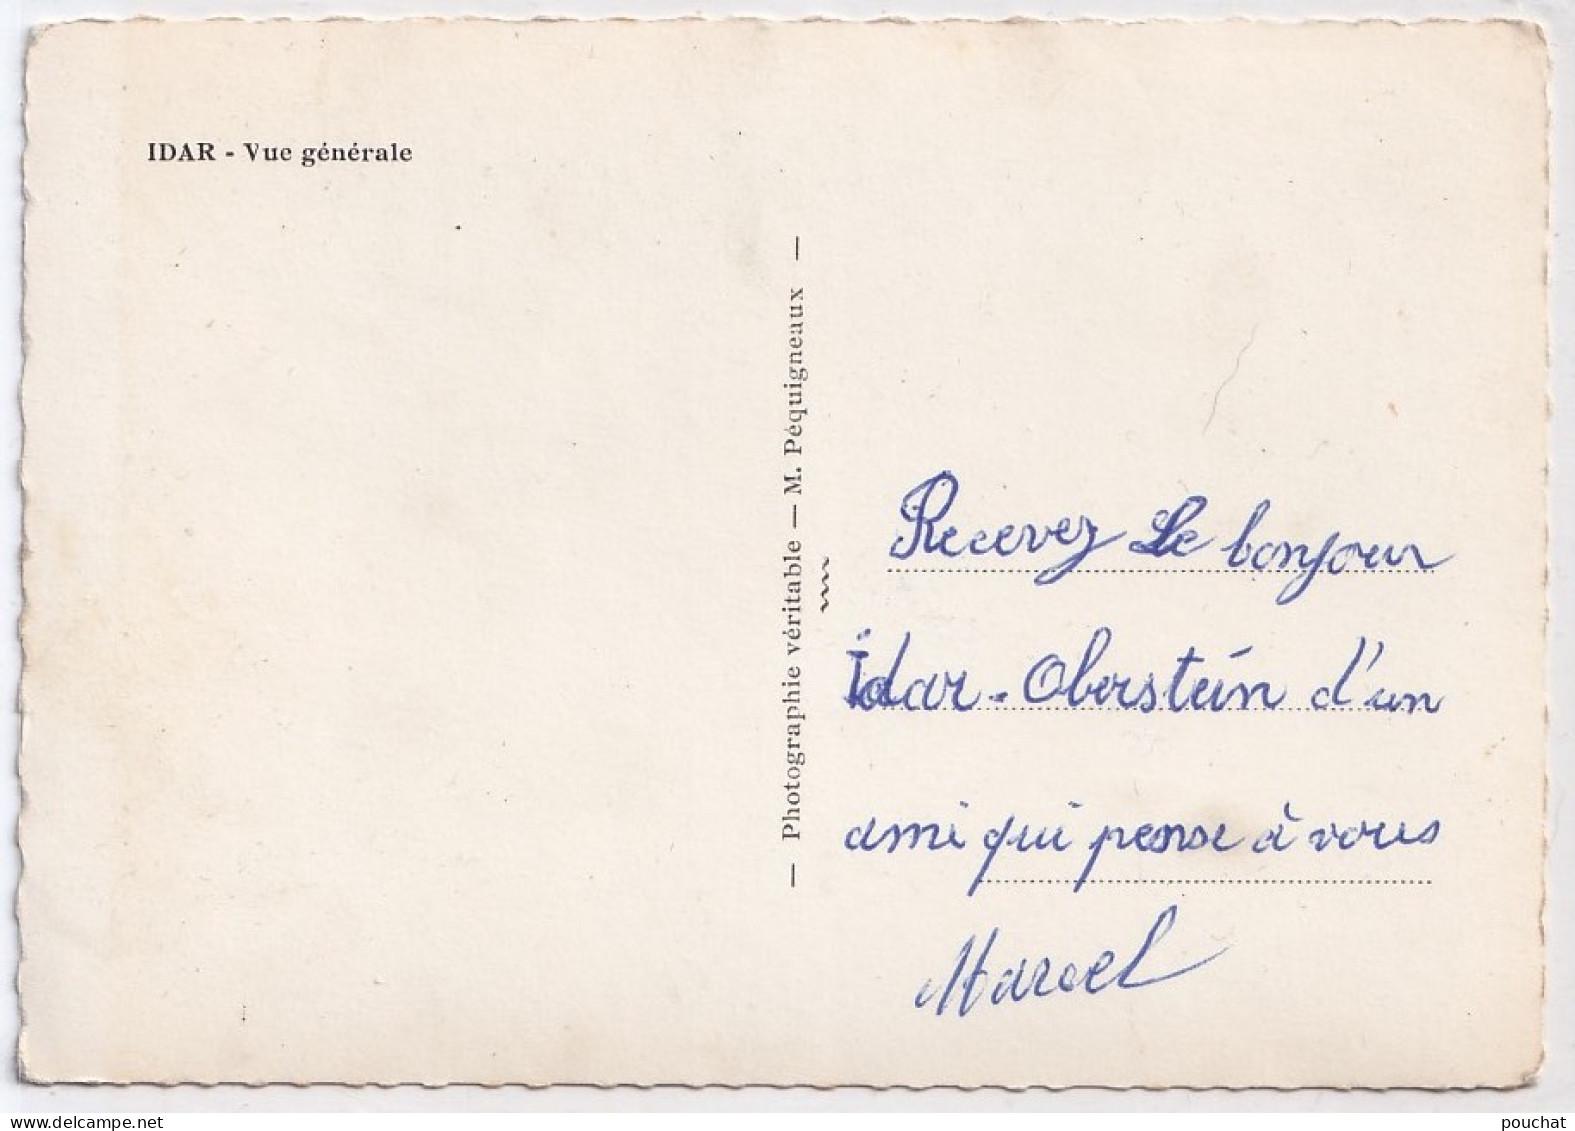 IDAR - Vue générale
— Photographie véritable — M. Péquigneaux —
Recevez Le bonjour
Idar-Oberstein d'un
ami qui pense à vous
Marcel
www.delcampe.net
pouchat